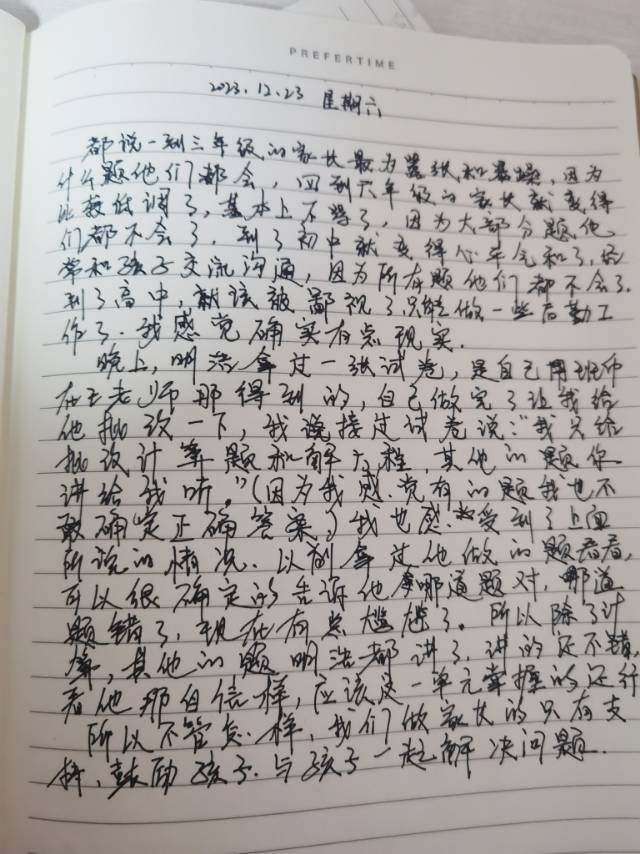 PREFERTIME
2023.12.23 星期六
都说一到三年级的家长最为嚣张和暴躁,因为
什么题他们都会,四到六年级的家长就变得
比较低调了,基本上不怒了,因为大部分题他
们都不会了.到了初中就变得心平气和了,经
常和孩子交流沟通,因为所有题他们都不会了.
到了高中,就该被鄙视了,只能做一些后勤工
作了.我感觉确实有点现实.
晚上,明浩拿过一张试卷,是自己用班币
在王老师那得到的,自己做完了让我给
他批改一下,我接过试卷说:"我只给
批改计算题和解方程,其他的题你
讲给我听."(因为我感觉有的题我也不
敢确定正确答案)我也感受到了上面
所说的情况.以前拿过他做的题看看,
可以很确定的告诉他哪道题对,哪道
题错了,现在有点尴尬了。所以除了计
算,其他的题明浩都讲了,讲的还不错,
看他那自信样,应该这一单元掌握的还行
所以不管怎样,我们做家长的只有支
持,鼓励孩子.与孩子一起解决问题.